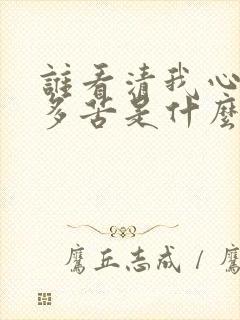 誰看清我心
多苦是什麼
鷹丘志成 / 鷹